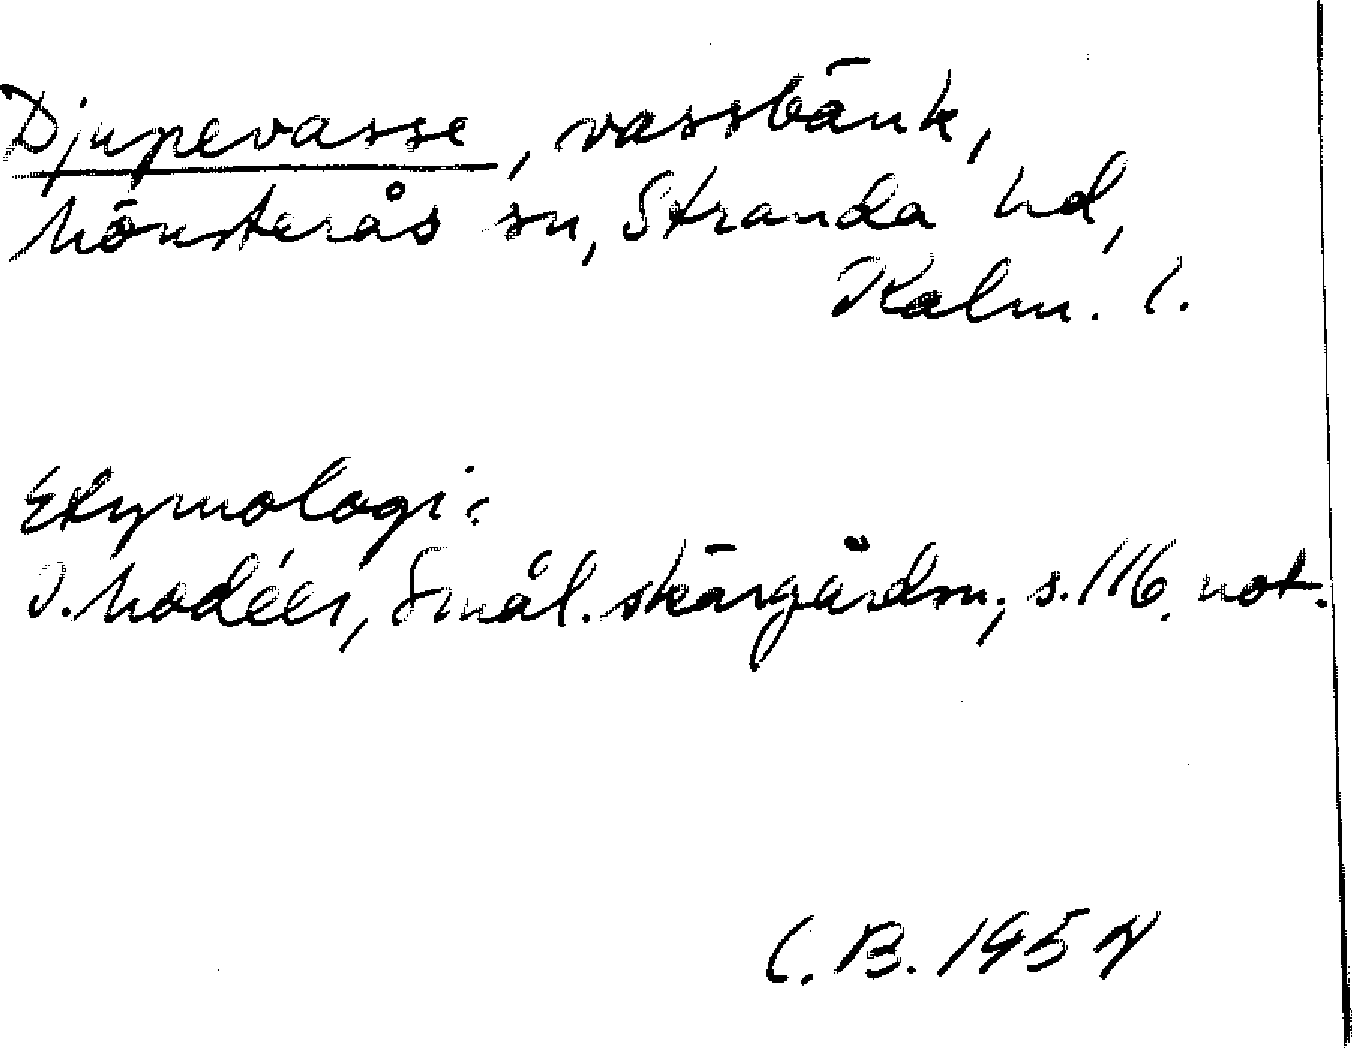 Djupevasse, vassbänk,
Mönsterås sn, Stranda hd,
Kalm. l.
Etymologi:
I. Modéer, Smål. skärgårdsn., s. 116. not.
C. B. 1957